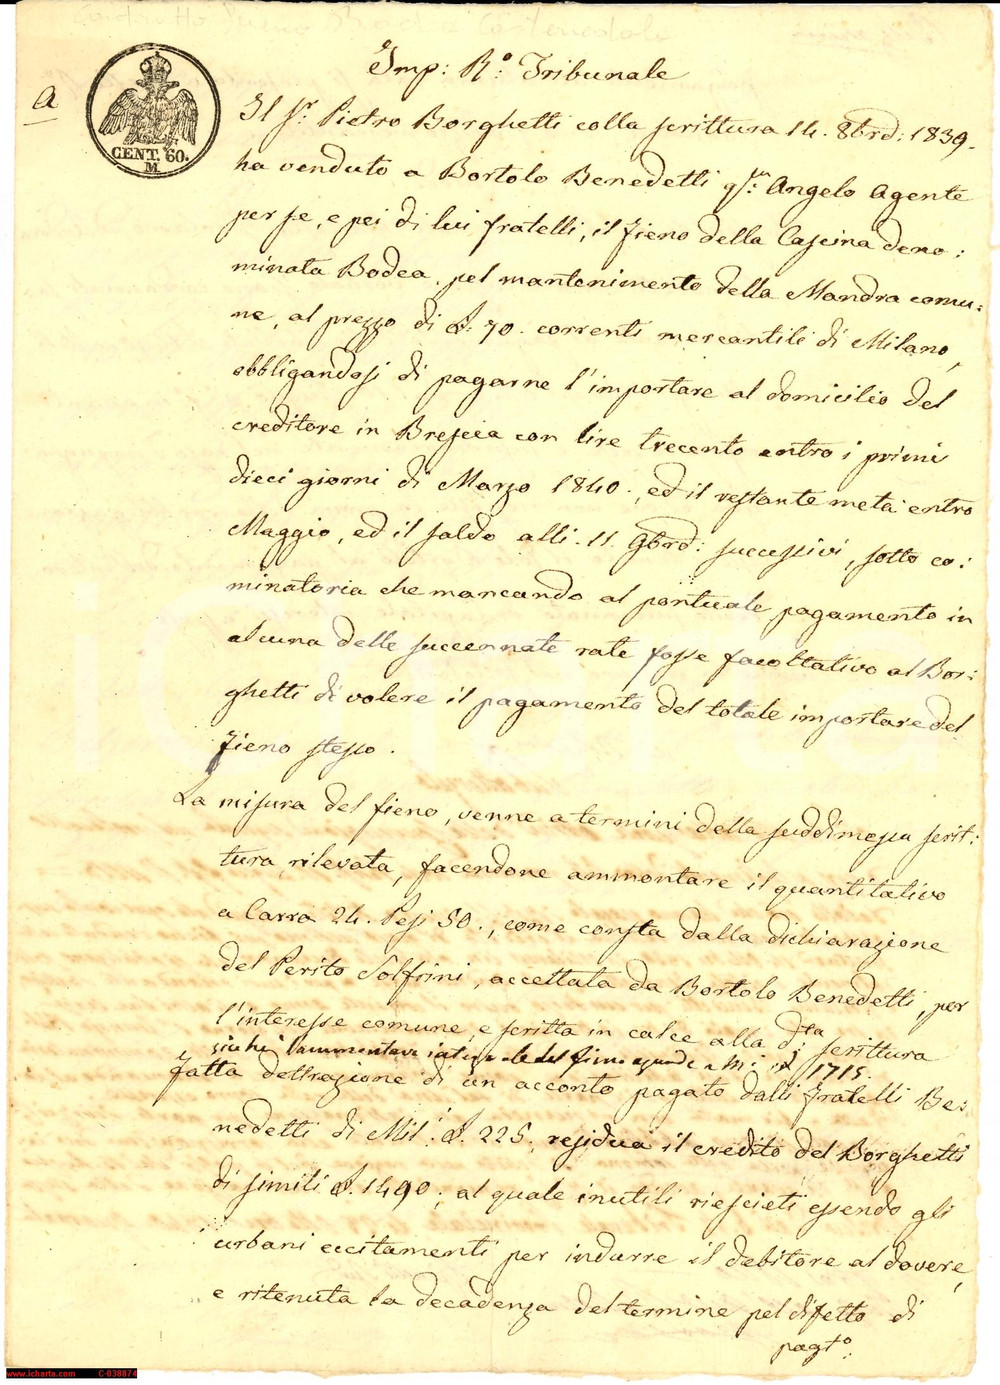 A
CENT. 60.
M.
Imp: R.º Tribunale
Il Sr Pietro Borghetti colla scrittura 14. 8brē: 1839.
ha venduto a Bortolo Benedetti qm: Angelo Agente
per se, e pei di lui fratelli, il fieno della Cascina deno:
minata Bodea, pel mantenimento della Mandra comu:
ne, al prezzo di £. 70. correnti mercantili di Milano,
obbligandosi di pagarne l'importare al domicilio del
creditore in Brescia con lire trecento entro i primi
dieci giorni di Marzo 1840., ed il restante metà entro
Maggio, ed il saldo alli 11. 9brē: successivi, sotto co:
minatoria che mancando al pontuale pagamento in
alcuna delle succennate rate fosse facoltativo al Bor:
ghetti di volere il pagamento del totale importare del
fieno stesso.
La misura del fieno, venne a termini della suddimessa scrit:
tura rilevata, facendone ammontare il quantitativo
a Carra 24. Pesi 50., come consta dalla dichiarazione
del Perito Solfrini, accettata da Bortolo Benedetti, per
l'interesse comune, e scritta in calce alla dta: scrittura
sicchè l'ammontare integrale del fieno 1715.
Fatta detrazione di un acconto pagato dalli fratelli Be:
nedetti di Mil: £. 225. residua il credito del Borghetti
di simili £. 1490; al quale inutili riescieti essendo gli
urbani eccitamenti per indurre il debitore al dovere,
e ritenuta la decadenza del termine pel difetto di
pagto:
www.icharta.com C-038874